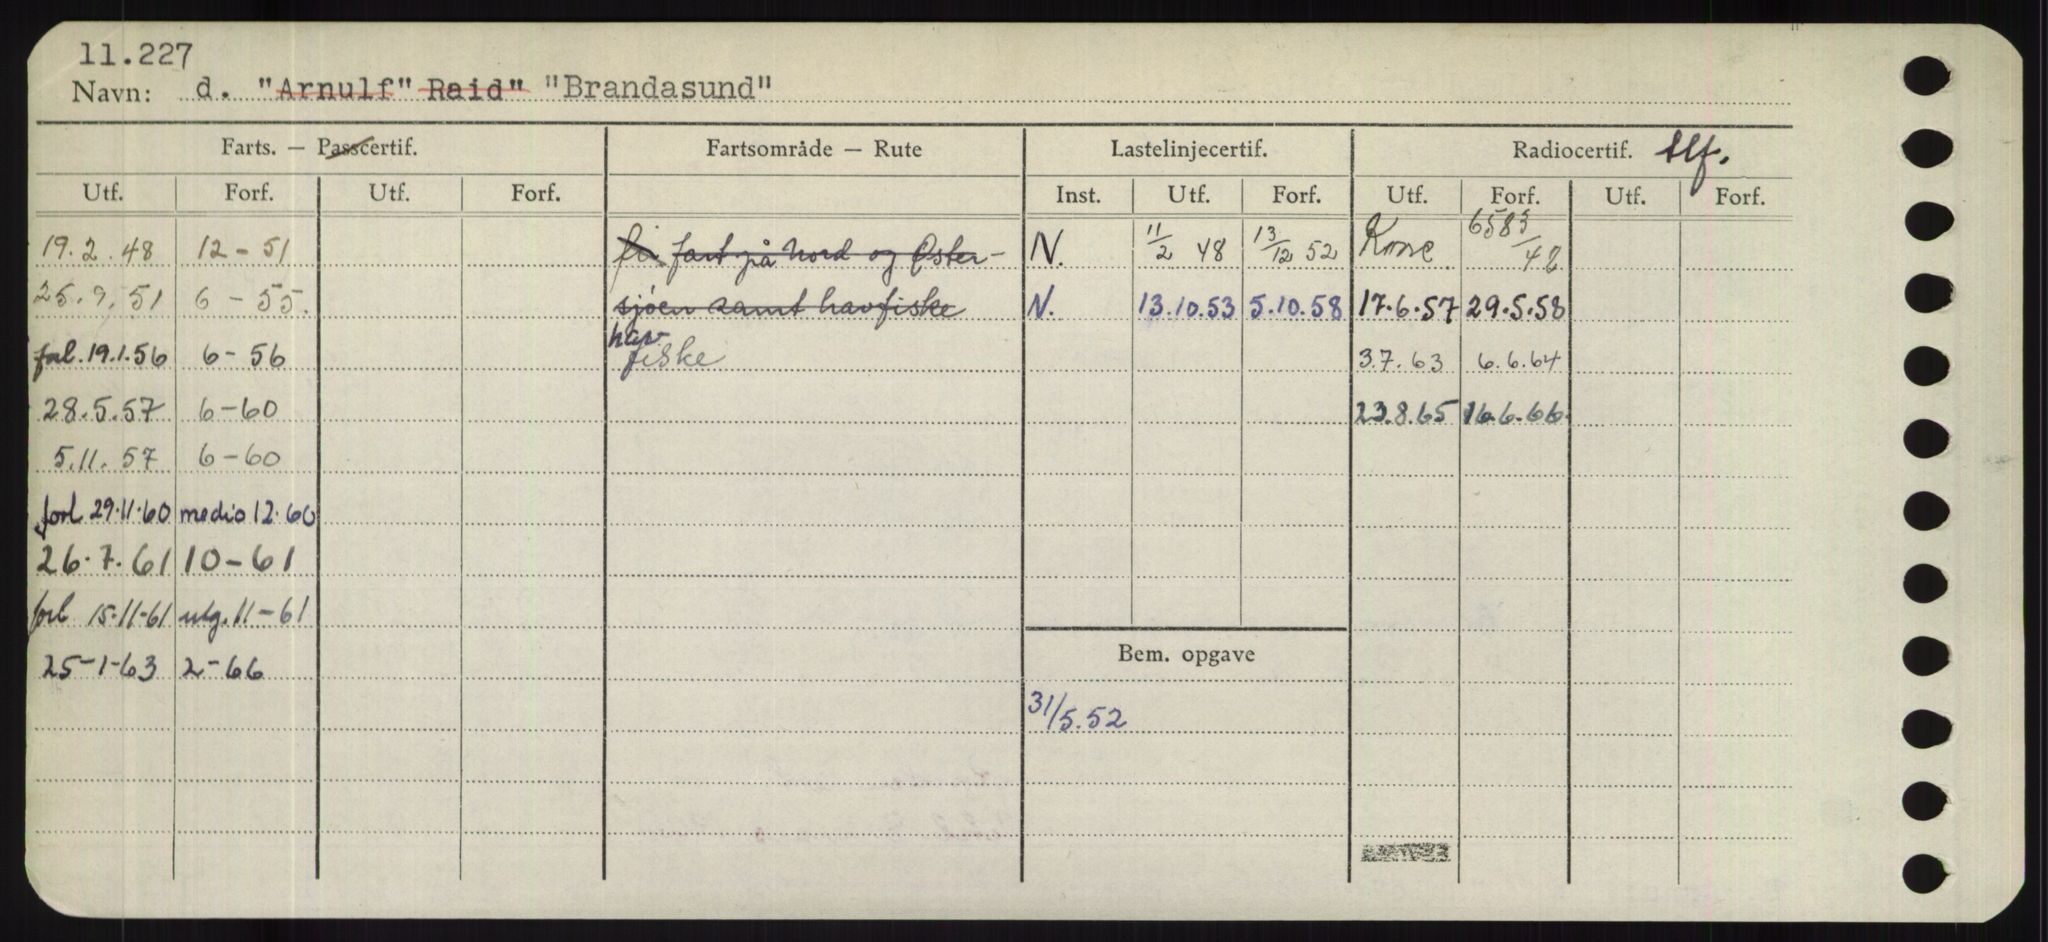 11.227
Navn: d. "Arnulf" Raid" "Brandasund"
Farts. — Passcertif. Fartsområde — Rute Lastelinjecertif. Radiocertif. tlf.
Utf. Forf. Utf. Forf. Inst. Utf. Forf. Utf. Forf. Utf. Forf.
19.2.48 12-51 fart på Nord og Øster- N. 11/2 48 13/12 52 6583/48
25.9.51 6-55. sjøen samt havfiske N. 13.10.53 5.10.58 17.6.57 29.5.58
hav
19.1.56 6-56 fiske 3.7.63 6.6.64
28.5.57 6-60 23.8.65 16.6.66
5.11.57 6-60
forl 29.11.60 medio 12.60
26.7.61 10-61
forl 15-11-61 utg. 11-61
Bem. opgave
25-1-63 2-66
31/5.52